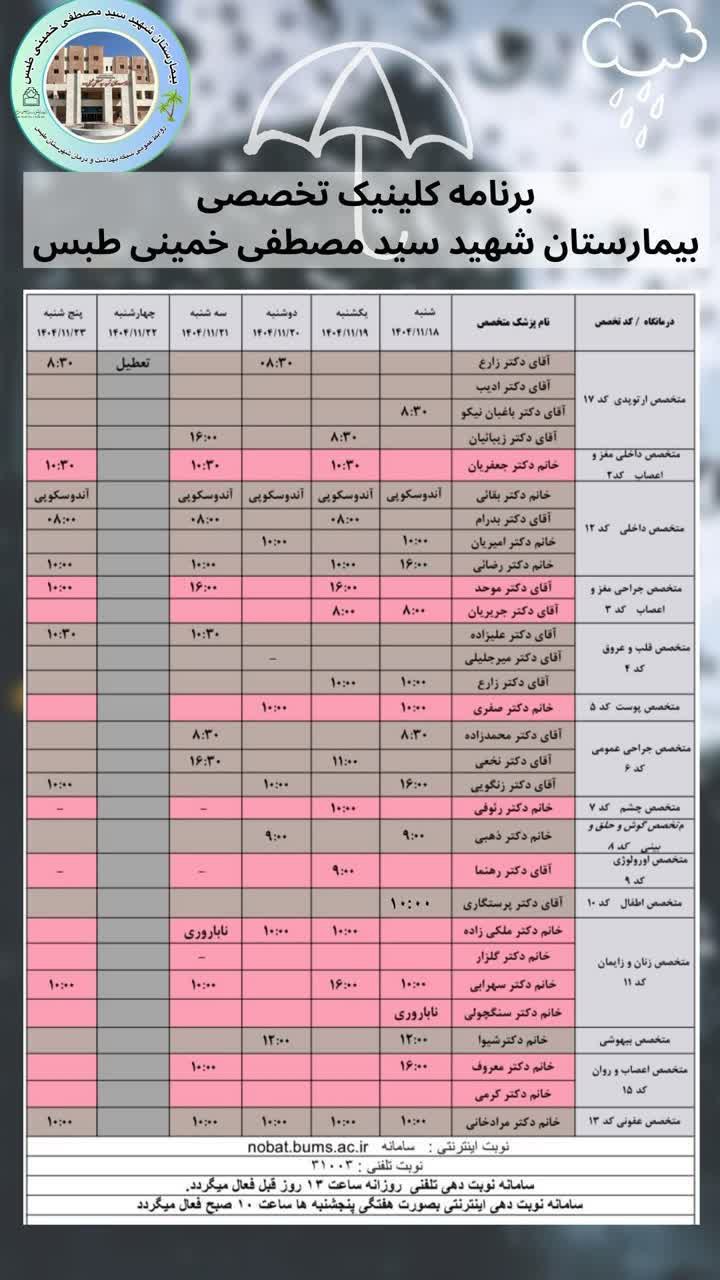 بیمارستان شهید سید مصطفی خمینی طبس
روابط عمومی شبکه بهداشت و درمان شهرستان طبس
برنامه کلینیک تخصصی
بیمارستان شهید سید مصطفی خمینی طبس
درمانگاه / کد تخصص نام پزشک متخصص شنبه ۱۴۰۴/۱۱/۱۸ یکشنبه ۱۴۰۴/۱۱/۱۹ دوشنبه ۱۴۰۴/۱۱/۲۰ سه شنبه ۱۴۰۴/۱۱/۲۱ چهارشنبه ۱۴۰۴/۱۱/۲۲ پنج شنبه ۱۴۰۴/۱۱/۲۳
متخصص ارتوپدی کد ۱۷ آقای دکتر زارع ۰۸:۳۰ تعطیل ۸:۳۰
آقای دکتر ادیب
آقای دکتر باغبان نیکو ۸:۳۰
آقای دکتر زیبائیان ۸:۳۰ ۱۶:۰۰
متخصص داخلی مغز و اعصاب کد۲ خانم دکتر جعفریان ۱۰:۳۰ ۱۰:۳۰ ۱۰:۳۰
متخصص داخلی کد ۱۲ خانم دکتر بقائی آندوسکوپی آندوسکوپی آندوسکوپی آندوسکوپی آندوسکوپی
آقای دکتر بدرام ۰۸:۰۰ ۰۸:۰۰ ۰۸:۰۰
خانم دکتر امیریان ۱۰:۰۰ ۱۰:۰۰
خانم دکتر رضائی ۱۶:۰۰ ۱۰:۰۰ ۱۰:۰۰ ۱۰:۰۰
متخصص جراحی مغز و اعصاب کد ۳ آقای دکتر موحد ۱۶:۰۰ ۱۶:۰۰ ۱۰:۰۰
آقای دکتر جریریان ۸:۰۰ ۸:۰۰
متخصص قلب و عروق کد ۴ آقای دکتر علیزاده ۱۰:۳۰ ۱۰:۳۰
آقای دکتر میرجلیلی -
آقای دکتر زارع ۱۰:۰۰ ۱۰:۰۰
متخصص پوست کد ۵ خانم دکتر صفری ۱۰:۰۰ ۱۰:۰۰
متخصص جراحی عمومی کد ۶ آقای دکتر محمدزاده ۸:۳۰ ۸:۳۰
آقای دکتر نخعی ۱۱:۰۰ ۱۶:۳۰
آقای دکتر زنگویی ۱۶:۰۰ ۱۰:۰۰ ۱۰:۰۰
متخصص چشم کد ۷ خانم دکتر رئوفی ۱۰:۰۰ - -
متخصص گوش و حلق و بینی کد ۸ خانم دکتر ذهبی ۹:۰۰ ۹:۰۰
متخصص اورولوژی کد ۹ آقای دکتر رهنما ۹:۰۰ - -
متخصص اطفال کد ۱۰ آقای دکتر پرستگاری ۱۰:۰۰
متخصص زنان و زایمان کد ۱۱ خانم دکتر ملکی زاده ۱۰:۰۰ ۱۰:۰۰ ناباروری
خانم دکتر گلزار -
خانم دکتر سهرابی ۱۰:۰۰ ۱۶:۰۰ ۱۰:۰۰ ۱۰:۰۰
خانم دکتر سنگچولی ناباروری
متخصص بیهوشی خانم دکترشیوا ۱۲:۰۰ ۱۲:۰۰
متخصص اعصاب و روان کد ۱۵ خانم دکتر معروف ۱۶:۰۰ ۱۰:۰۰
خانم دکتر کرمی
متخصص عفونی کد ۱۳ خانم دکتر مرادخانی ۱۰:۰۰ ۱۰:۰۰ ۱۰:۰۰ ۱۰:۰۰ ۱۰:۰۰
نوبت اینترنتی : سامانه nobat.bums.ac.ir
نوبت تلفنی : ۳۱۰۰۳
سامانه نوبت دهی تلفنی روزانه ساعت ۱۳ روز قبل فعال میگردد.
سامانه نوبت دهی اینترنتی بصورت هفتگی پنجشنبه ها ساعت ۱۰ صبح فعال میگردد